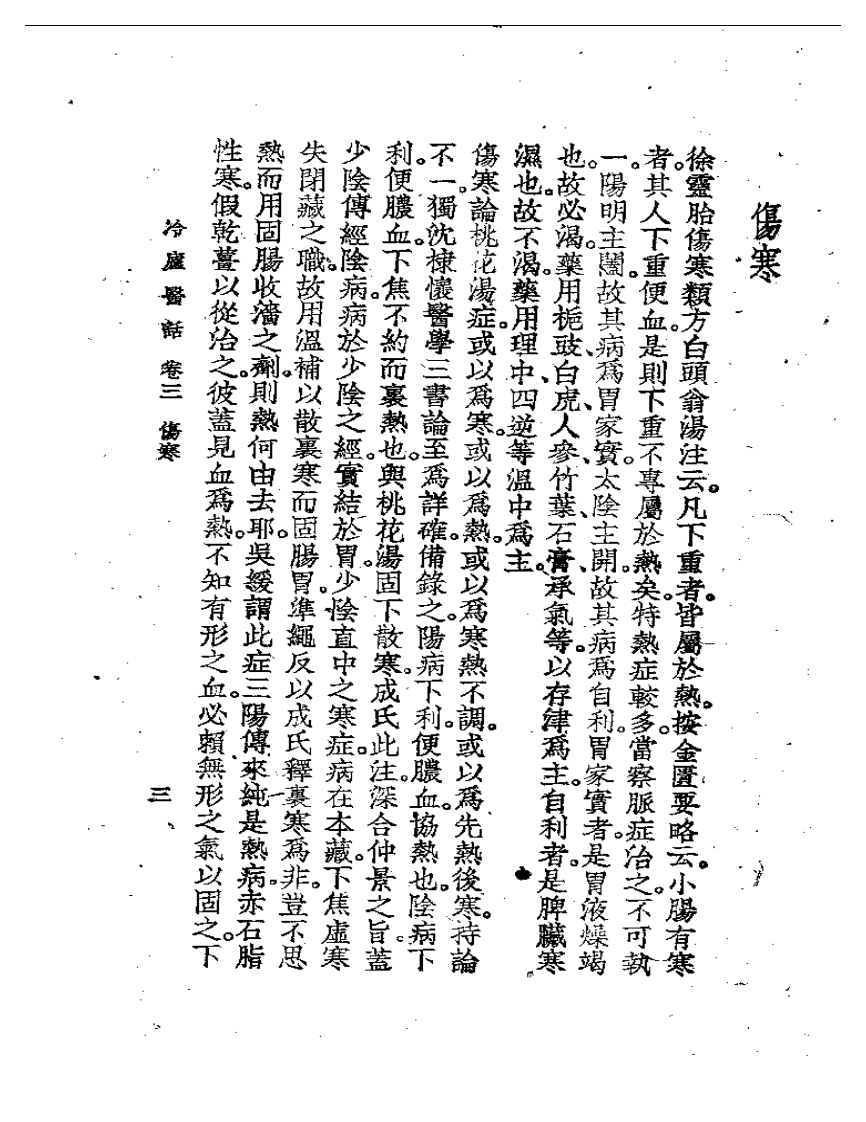 傷寒
徐靈胎傷寒類方白頭翁湯注云。凡下重者。皆屬於熱。按金匱要略云。小腸有寒
者。其人下重便血。是則下重不專屬於熱矣。特熱症較多。當察脈症治之。不可執
一。陽明主闔。故其病爲胃家實。太陰主開。故其病爲自利。胃家實者。是胃液燥竭
也。故必渴。藥用梔豉、白虎、人參、竹葉、石膏、承氣等。以存津爲主。自利者。是脾臟寒
濕也。故不渴。藥用理中、四逆等溫中爲主。
傷寒論桃花湯症。或以爲寒。或以爲熱。或以爲寒熱不調。或以爲先熱後寒。持論
不一。獨沈棣懷醫學三書論。至爲詳確。備錄之。陽病下利。便膿血。協熱也。陰病下
利。便膿血。下焦不約而裏熱也。與桃花湯。固下散寒。成氏此注。深合仲景之旨。蓋
少陰傳經陰病。病於少陰之經。實結於胃。少陰直中之寒症。病在本藏。下焦虛寒
失閉藏之職。故用溫補以散裏寒而固腸胃。準繩反以成氏釋裏寒爲非。豈不思
熱而用固腸收濇之劑。則熱何由去耶。吳緩謂此症三陽傳來純是熱病。赤石脂
性寒。假乾薑以從治之。彼蓋見血爲熱。不知有形之血。必賴無形之氣以固之。下
冷廬醫話 卷三 傷寒
三